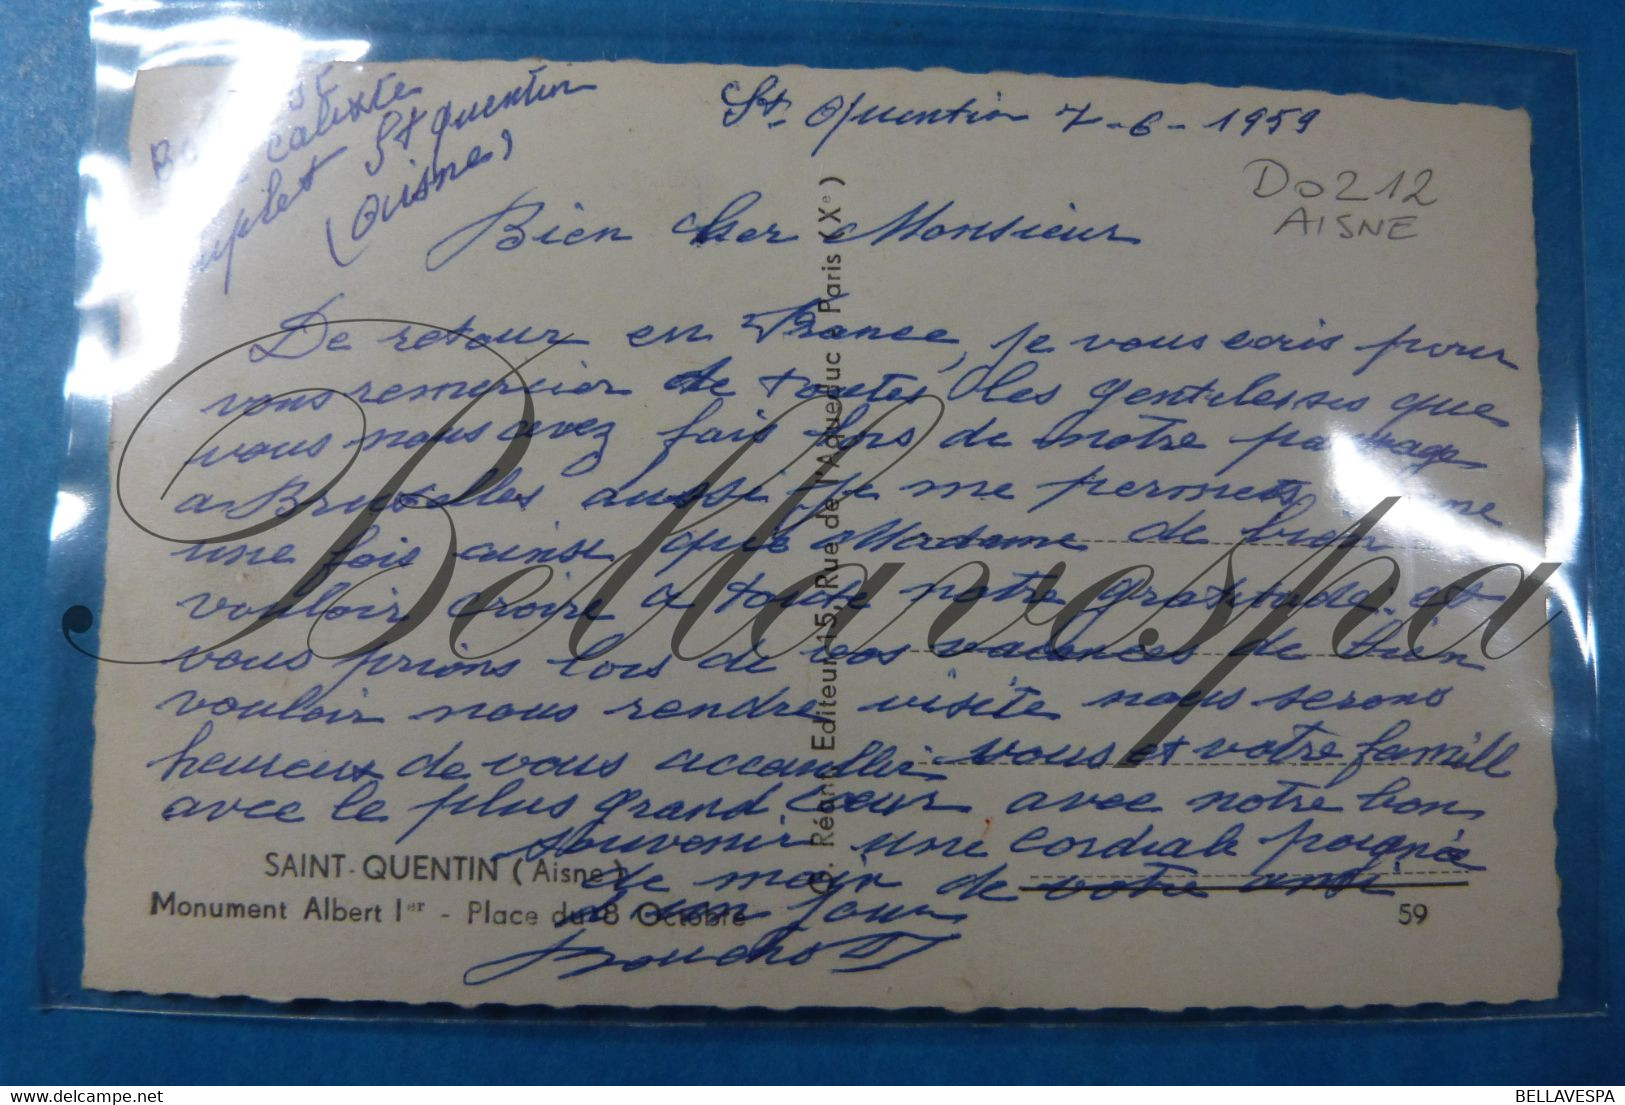 calixte
St quentin
(Aisne)
St. Quentin 7-6-1959
Do 212
AISNE
Bien cher Monsieur
De retour en France, je vous ecris pour
vous remercier de toutes les gentilesses que
vous nous avez fais lors de notre passage
a Bruxelles aussi je me permets
une fois ainsi que Madame de bien
vouloir croire a toute notre gratitude. et
vous prions lors de vos vacances de bien
vouloir nous rendre visite nous serons
heureux de vous accueillir vous et votre famill
avec le plus grand coeur avec notre bon
souvenir une cordiale poignée
de main de votre ami
d'un jour
G. Réant, Editeur, 15, Rue de l'Aqueduc - Paris (Xe)
SAINT-QUENTIN (Aisne)
Monument Albert Ier - Place du 8 Octobre
59
Bellavespa
delcampe.net
BELLAVESPA